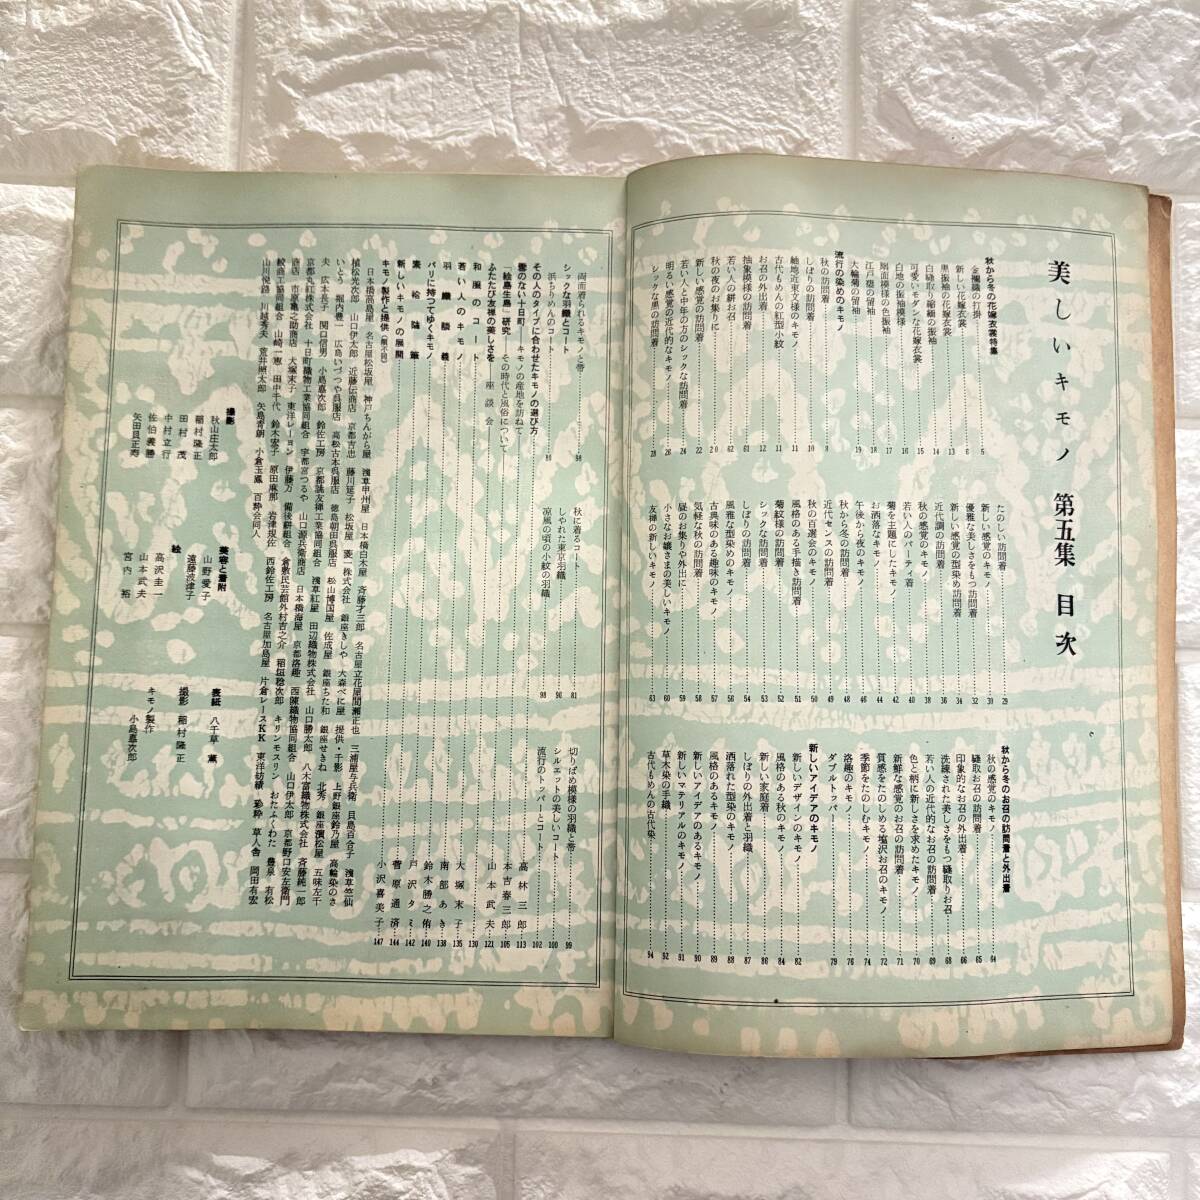 美しいキモノ 第五集 目次
秋から冬の花嫁衣裳特集
金襴織の打掛 5
新しい花嫁衣裳 6
黒振袖の花嫁衣裳 8
白縫取り縮緬の振袖 13
可愛いモダンな花嫁衣裳 14
白地の振袖模様 15
扇面模様の色振袖 16
江戸褄の留袖 17
大輪菊の留袖 18
流行の染めのキモノ 19
秋の訪問着 8
しぼりの訪問着 9
紬地近東文様のキモノ 10
古代もめんの紅型小紋 11
お召の外出着 11
抽象模様の訪問着 12
若い人の絣お召 62
秋の夜のお集りに 20
新しい感覚の訪問着 22
若い人と中年の方のシックな訪問着 24
明るい感覚の近代的なキモノ 26
シックな黒の訪問着 28
たのしい訪問着 29
新しい感覚のキモノ 30
優雅な美しさをもつ訪問着 32
新しい感覚の型染め訪問着 34
近代調の訪問着 36
秋の感覚のキモノ 38
若い人のパーティ着 40
菊を主題にしたキモノ 41
お洒落なキモノ 42
午後から夜のキモノ 44
秋から冬の訪問着 46
近代センスの訪問着 49
秋の百選会のキモノ 50
風格のある手描き訪問着 51
菊紋様の訪問着 52
シックな訪問着 53
しぼりの訪問着 54
風雅な型染めのキモノ 55
古典味のある趣味のキモノ 56
気軽な秋の訪問着 58
昼のお集りや外出に 59
小さなお嬢さまの美しいキモノ 60
友禅の新しいキモノ 63
秋から冬のお召の訪問着と外出着
秋の感覚のキモノ 64
縫取お召の訪問着 65
印象的なお召の外出着 66
洗練された美しさをもつ縫取りお召 68
若い人の近代的なお召の訪問着 69
色と柄に新しさを求めたキモノ 70
新鮮な感覚のお召の訪問着 71
質感をたのしめる塩沢お召のキモノ 72
季節をたのしむキモノ 74
洛趣のキモノ 76
ダブルトッパー 79
新しいアイデアのキモノ
新しいデザインのキモノ 82
風格のある秋のキモノ 84
新しい家庭着 86
しぼりの外出着と羽織 87
洒落れた型染のキモノ 88
風格のあるキモノ 89
新しいアイデアのあるキモノ 90
新しいマテリアルのキモノ 91
草木染の手織 92
古代もめんの古代染 94
両面着られるキモノと帯 98
シックな羽織とコート
浜ちりめんのコート 80
秋に着るコート 81
しやれた東京羽織 90
凉風の頃の小紋の羽織 98
切りばめ模様の羽織と帯 99
シルエットの美しいコート 100
流行のトッパーとコート 102
その人のタイプに合わせたキモノの選び方 高林三郎 113
雪のない十日町 キモノの産地を訪ねて 本吉春三郎 105
「絵島生島」研究 その時代と風俗について 山本武夫 121
ふたたび友禅の美しさを 座談会 130
和服のコート 大塚末子 135
若い人のキモノ 南部あき 138
羽織談義 鈴木勝之侑 140
パリに持つてゆくキモノ 戸沢タミ 142
素袷随筆 菅原通済 144
新しいキモノの展開 小沢喜美子 147
キモノ製作と提供(順不同)
日本橋高島屋 名古屋松坂屋 神戸ちんがら屋 浅草甲州屋 日本橋白木屋 斉藤才三郎 名古屋立花屋間瀬正也 三浦屋与兵衛 貝島百合子 浅草竺仙
植松光次郎 山口伊太郎 近藤伝商店 京都吉忠 藤川延子 松坂屋 菱一株式会社 銀座きしや 大森べに屋 提供・千影 上野銀座鈴乃屋 高輪染のさ
いとう 堀内豊一 広島いづつや呉服店 高松古本呉服店 徳島朝田呉服店 松山博国屋 佐成屋 銀座ちた和 銀座せきね 北秀 銀座濱松屋 五味左千
夫 広本長子 関口信男 小島嘉次郎 鈴佐工房 京都誠友禅工業協同組合 浅草紅屋 田辺織物株式会社 山口勝太郎 八木富織物株式会社 斉藤純一郎
京都丸紅株式会社 十日町織物工業協同組合 宇都宮つるや 山口源兵衛商店 日本橋海屋 京都洛趣 西陣織物協同組合 山口伊太郎 京都野口安左衛門
商店 市原亀之助商店 犬塚末子 東洋レーヨン 伊藤万 備後耕組合 倉敷民芸館外村吉之介 稲垣稔次郎 キリンモスリン おたふくわた 豊泉 有松
絞商工協同組合 山崎一恵 田中千代 鈴木宏子 原田麻那 岩津規佐 西鈴佐工房 名古屋加島屋 片倉レースKK 東洋紡績 彩粋 草人舎 岡田有宏
山川悦路 川越秀夫 荒井照太郎 矢島青朗 小倉玉鳳 百粋会同人
撮影
秋山庄太郎
稲村隆正
田村茂
中村立行
佐伯義勝
矢田貝正寿
美容と着附
山野愛子
遠藤波津子
絵
高沢圭一
山本武夫
宮内裕
表紙 八千草薫
撮影 稲村隆正
キモノ製作 小島嘉次郎